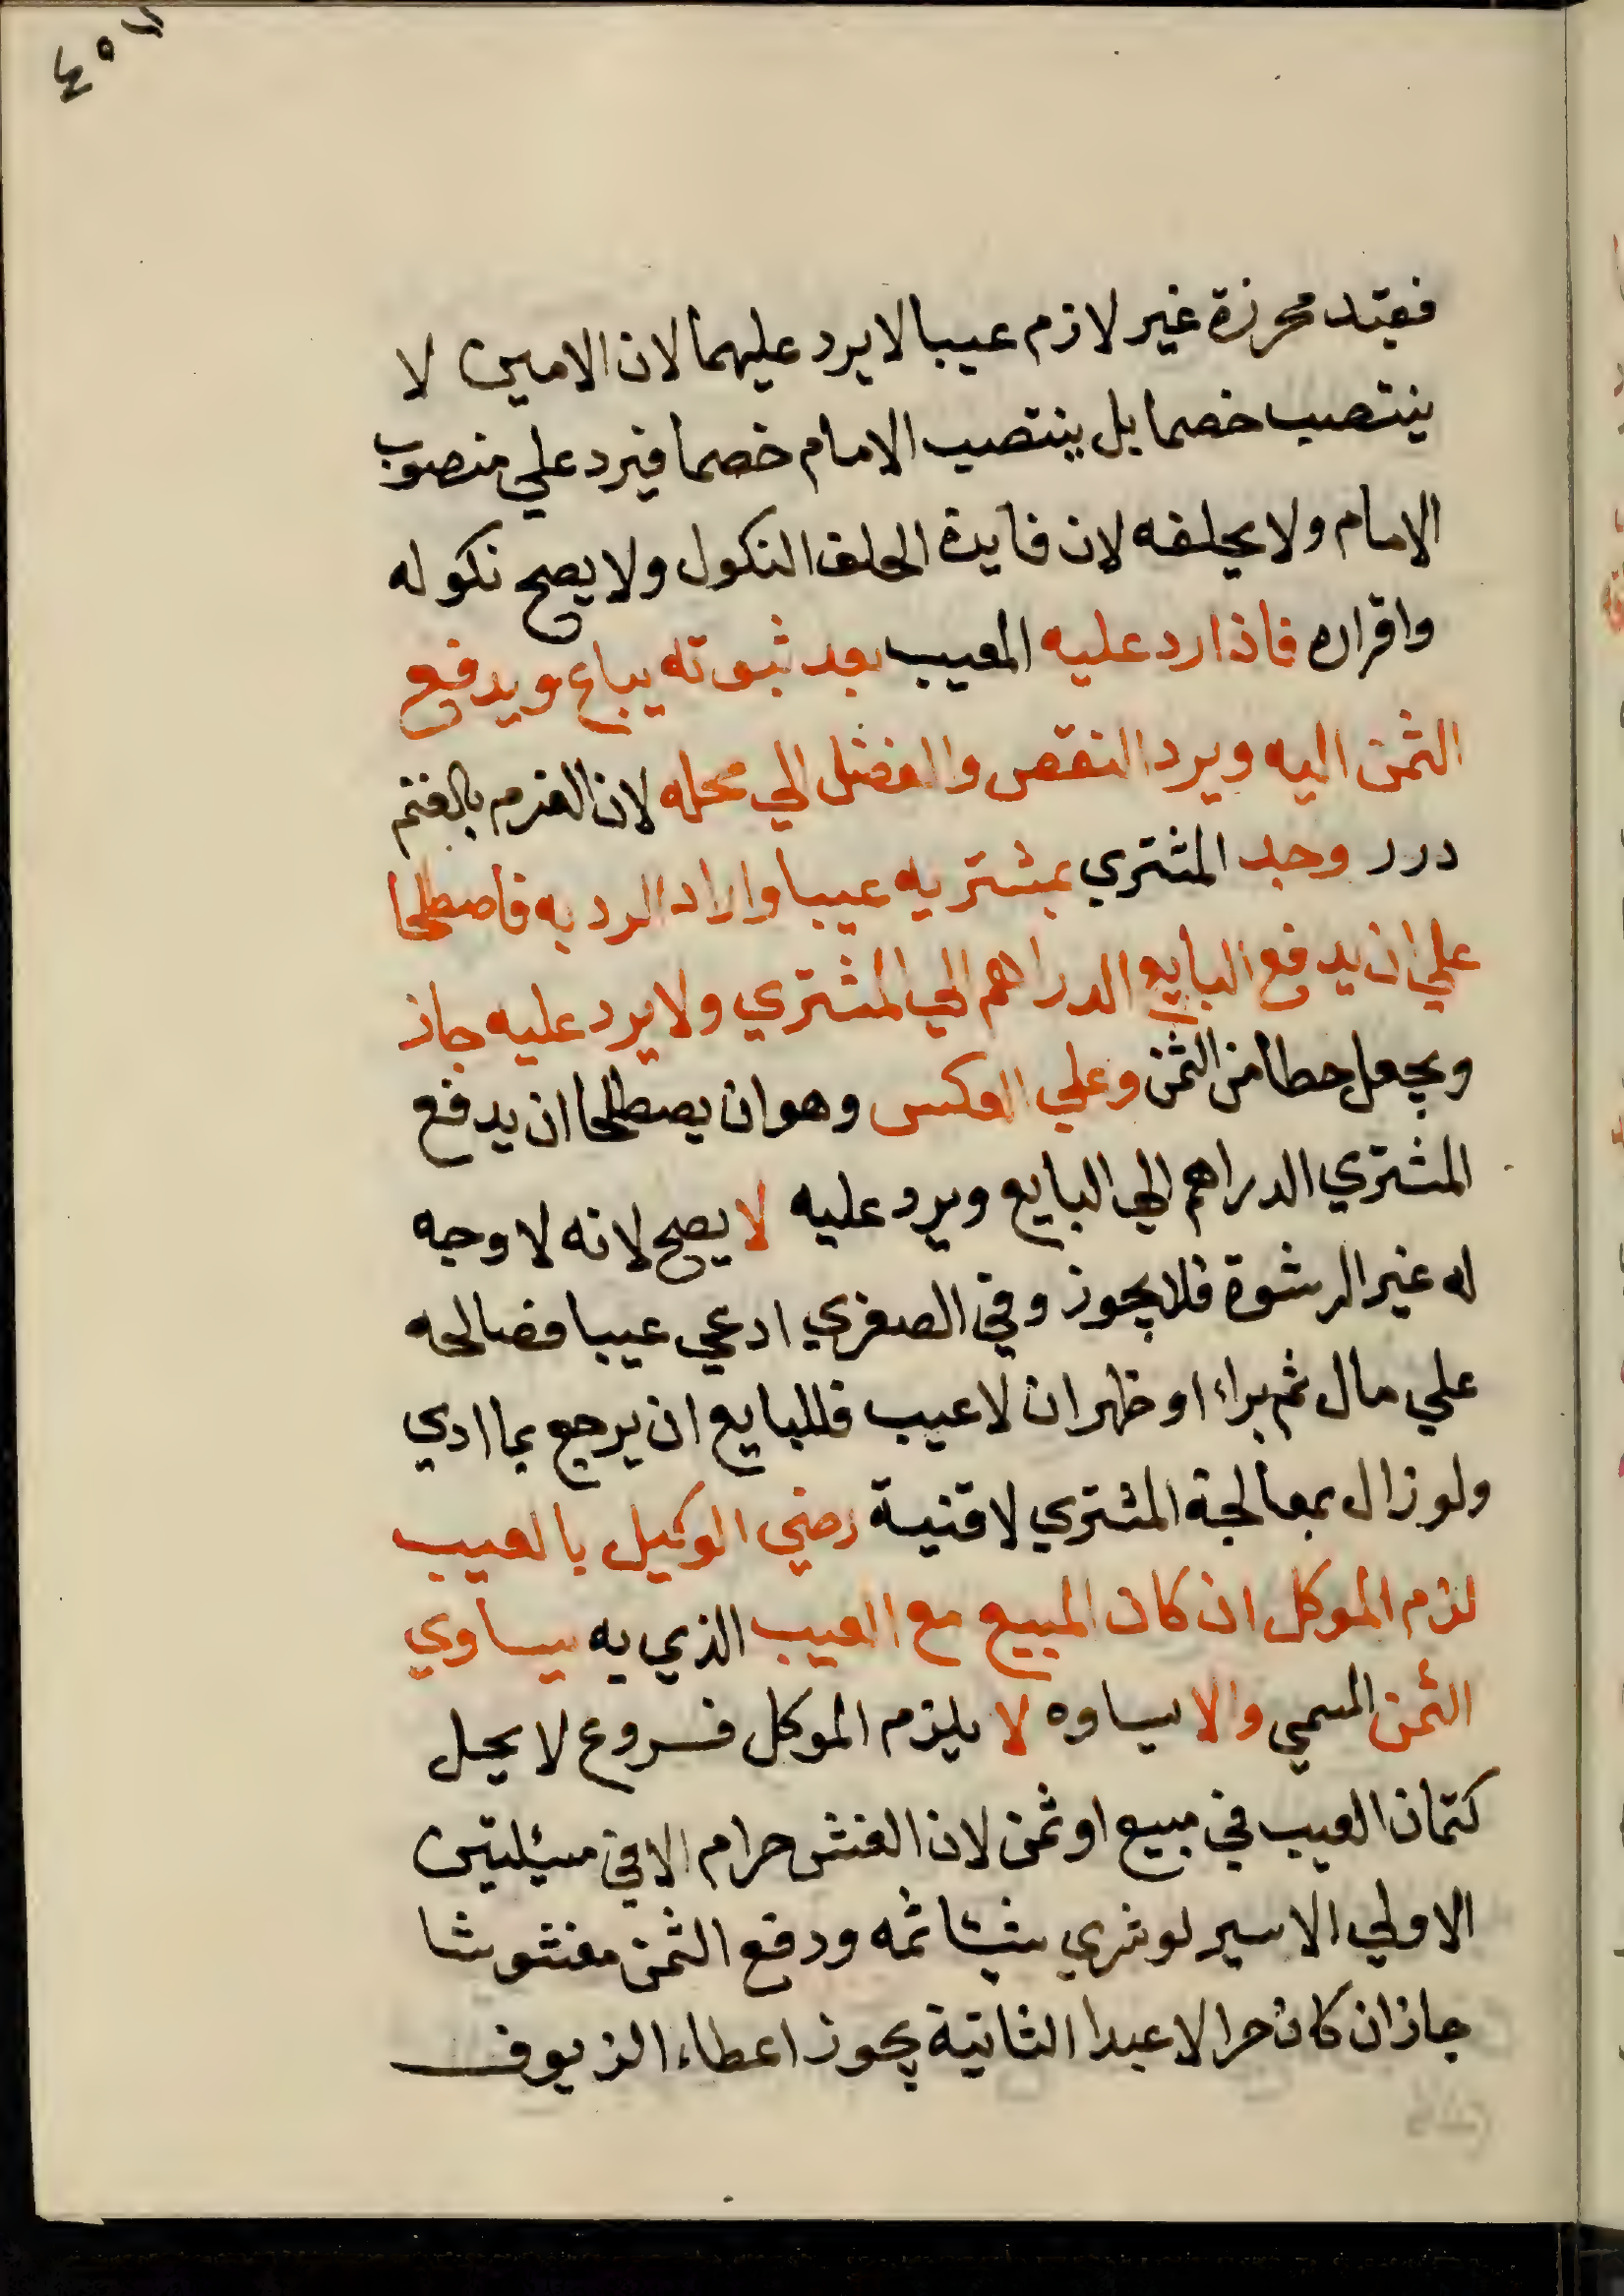 ٤٥٧
فقيد محرزة غير لازم عيبا لا يرد عليهما لان الامين لا
ينتصب خصما بل ينتصب الامام خصما فيرد علي منصوب
الامام ولا يحلفه لان فايدة الحلف النكول ولا يصح نكوله
واقراره فاذا رد عليه المعيب بعد ثبوته يباع ويدفع
الثمن اليه ويرد النقص والفضل الي محله لان الغرم بالغنم
درر وجد المشتري بمشتريه عيبا واراد الرد به فاصطلحا
علي ان يدفع البايع الدراهم الي المشتري ولا يرد عليه جاز
ويجعل حطا من الثمن وعلي العكس وهو ان يصطلحا ان يدفع
المشتري الدراهم الي البايع ويرد عليه لا يصح لانه لا وجه
له غير الرشوة فلا يجوز وفي الصغري ادعي عيبا فصالحه
علي مال ثم براء او ظهر ان لا عيب فللبايع ان يرجع بما ادي
ولو زال بمعالجة المشتري لا قنية رضي الوكيل بالعيب
لزم الموكل ان كان المبيع مع العيب الذي به يساوي
الثمن المسمي والا يساوه لا يلزم الموكل فروع لا يحل
كتمان العيب في مبيع او ثمن لان الغش حرام الا في مسئلتين
الاولي الاسير لو شري شيئا ثمه ودفع الثمن مغشوشا
جاز ان كان حرا لا عبدا الثانية يجوز اعطاء الزيوف